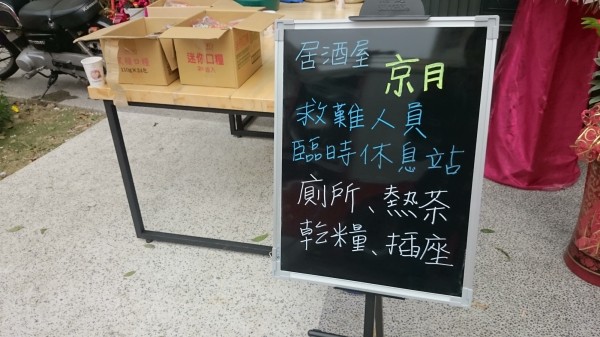 居酒屋
京月
救難人員
臨時休息站
廁所、熱茶
乾糧、插座
迷你口糧